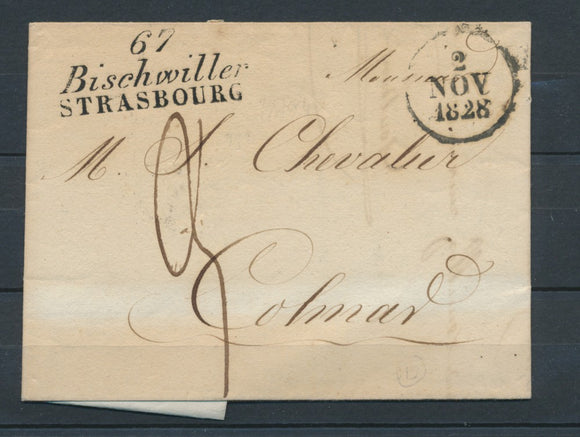 67
Bischwiller
STRASBOURG
2
NOV
1828
M. S. Chevalier
Colmar
L